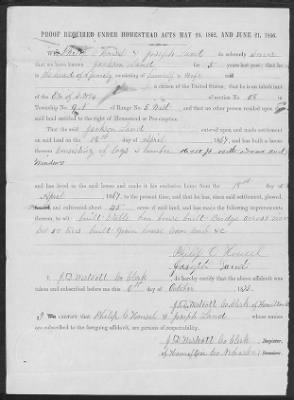 PROOF REQUIRED UNDER HOMESTEAD ACTS MAY 20, 1862, AND JUNE 21, 1866.
We, Philip C. Housel & Joseph Sand do solemnly swear
that we have known Jackson Sand for 5 years last past; that he
is the head of family consisting of himself & Wife
a citizen of the United States; that he is an inhabitant
of the of section No.
Township No. 9 of Range No. 5 West and that no other person resided upon
said land entitled to the right of Homestead or Pre-emption.
That the said Jackson Sand entered upon and made settlement
on said land on the 18th day of April, 1867, and has built a house
thereon consisting of logs & lumber 16x20 ft. with doors and
Windows
and has lived in the said house and made it his exclusive home from the 18th day of
April 1867, to the present time, and that he has, since said settlement, plowed,
fenced and cultivated about 45 acres of said land, and has made the following improvements
thereon, to wit: built Stable hen house built Bridge across
built grain house &c
Philip C Housel
Joseph Sand
I, J. D. Westcott Co Clerk do hereby certify that the above affidavit was
taken and subscribed before me this 6th day of October 1873.
J. D. Westcott Co Clerk of Hamilton
We certify that Philip C Housel & Joseph Sand whose names
are subscribed to the foregoing affidavit, are persons of respectability.
J D Westcott Co Clerk Register.
of Hamilton Co Nebraska Receiver.